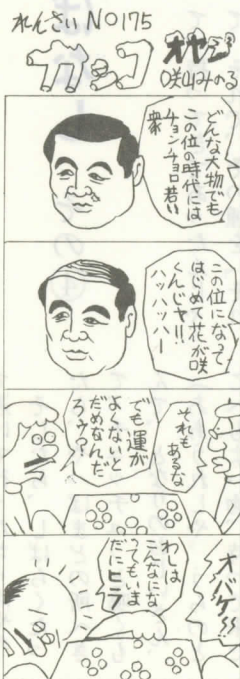 れんさい NO175
カッコオヤジ
咲山みのる
どんな大物でも
この位の時代には
チョンチョロ若い
衆
この位になって
はじめて花が咲
くんじャ!!
ハッハッハー
それも
あるな
でも運が
よくないと
だめなんだ
ろゥ?
オバケ!!
わしは
こんなにな
ってもいま
だにヒラ